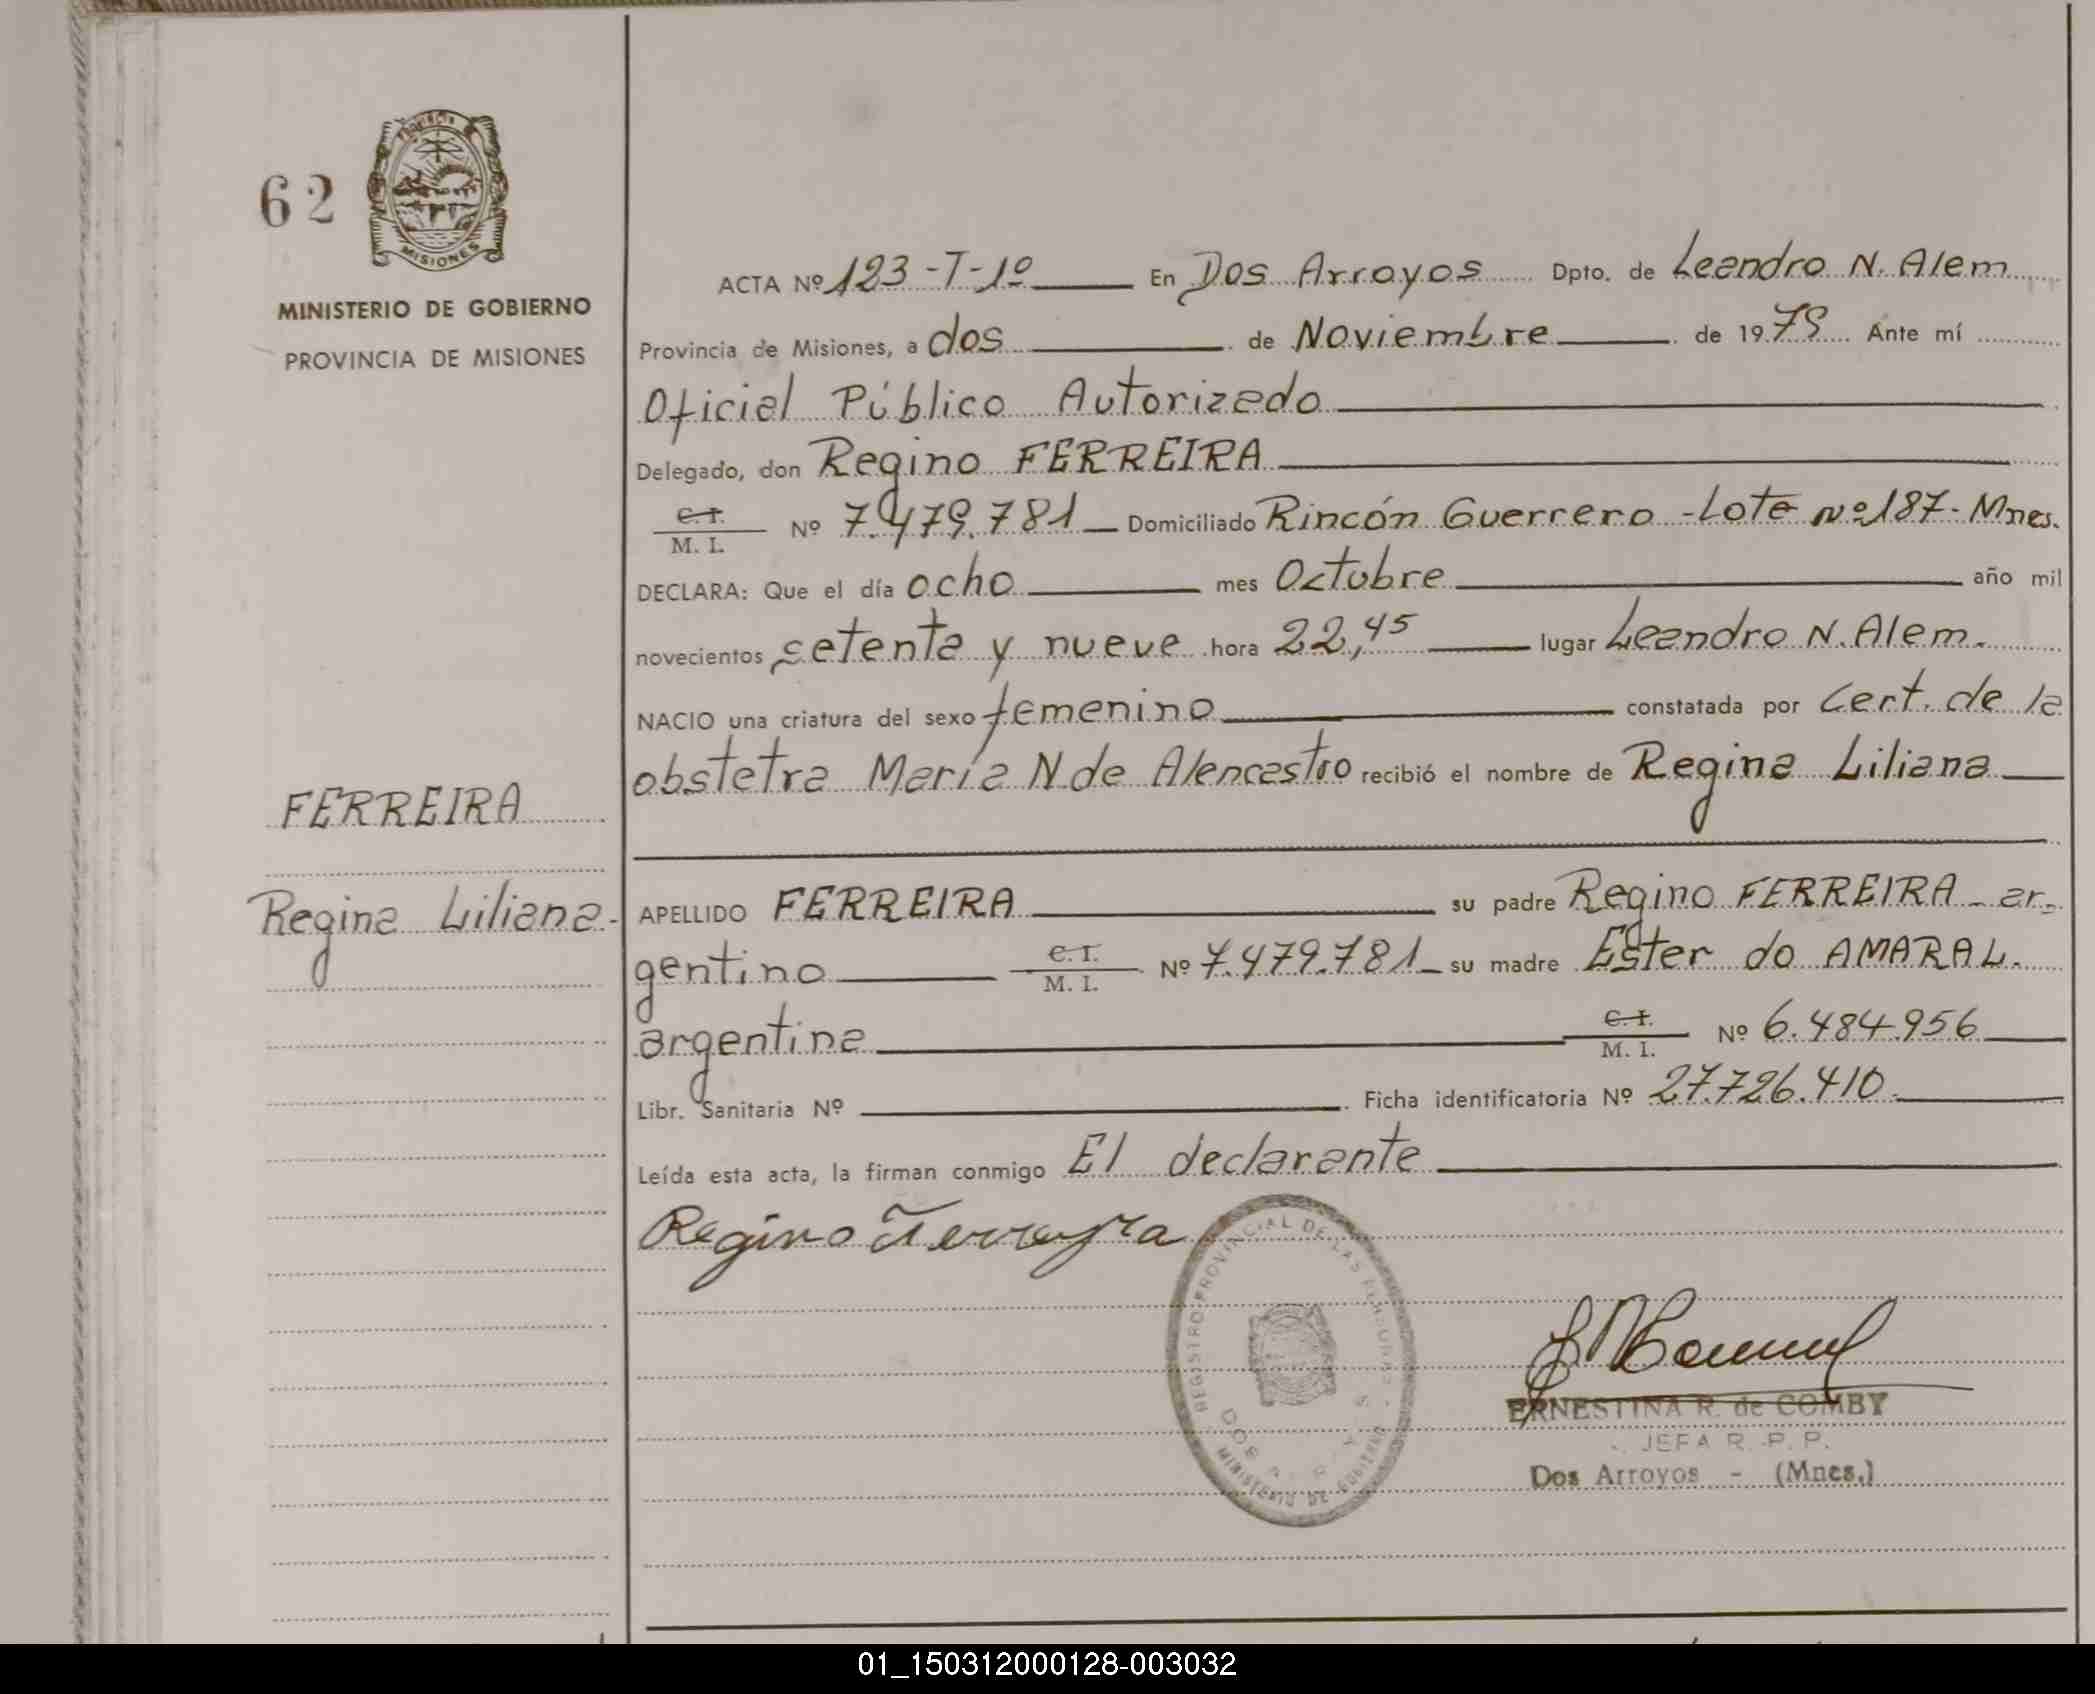 62
PROVINCIA DE
MISIONES
MINISTERIO DE GOBIERNO
PROVINCIA DE MISIONES
FERREIRA
Regina Liliana.
ACTA Nº 123-T-1º En Dos Arroyos Dpto. de Leandro N. Alem
Provincia de Misiones, a dos de Noviembre de 1979 Ante mí
Oficial Público Autorizado
Delegado, don Regino FERREIRA
C. I. M. I. Nº 7.479.781 Domiciliado Rincón Guerrero - Lote Nº 187- Mnes.
DECLARA: Que el día ocho mes Octubre año mil
novecientos setenta y nueve hora 22,45 lugar Leandro N. Alem.
NACIO una criatura del sexo femenino constatada por Cert. de la
obstetra María N. de Alencastro recibió el nombre de Regina Liliana
APELLIDO FERREIRA su padre Regino FERREIRA - ar-
gentino C. I. M. I. Nº 7.479.781 su madre Ester do AMARAL.
argentina C. I. M. I. Nº 6.484.956
Libr. Sanitaria Nº Ficha identificatoria Nº 27.726.410
Leída esta acta, la firman conmigo El declarante
Regino Ferreyra
REGISTRO PROVINCIAL DE LAS PERSONAS
MINISTERIO DE GOBIERNO
ERNESTINA R. de COMBY
JEFA R. P. P.
Dos Arroyos - (Mnes.)
01_150312000128-003032